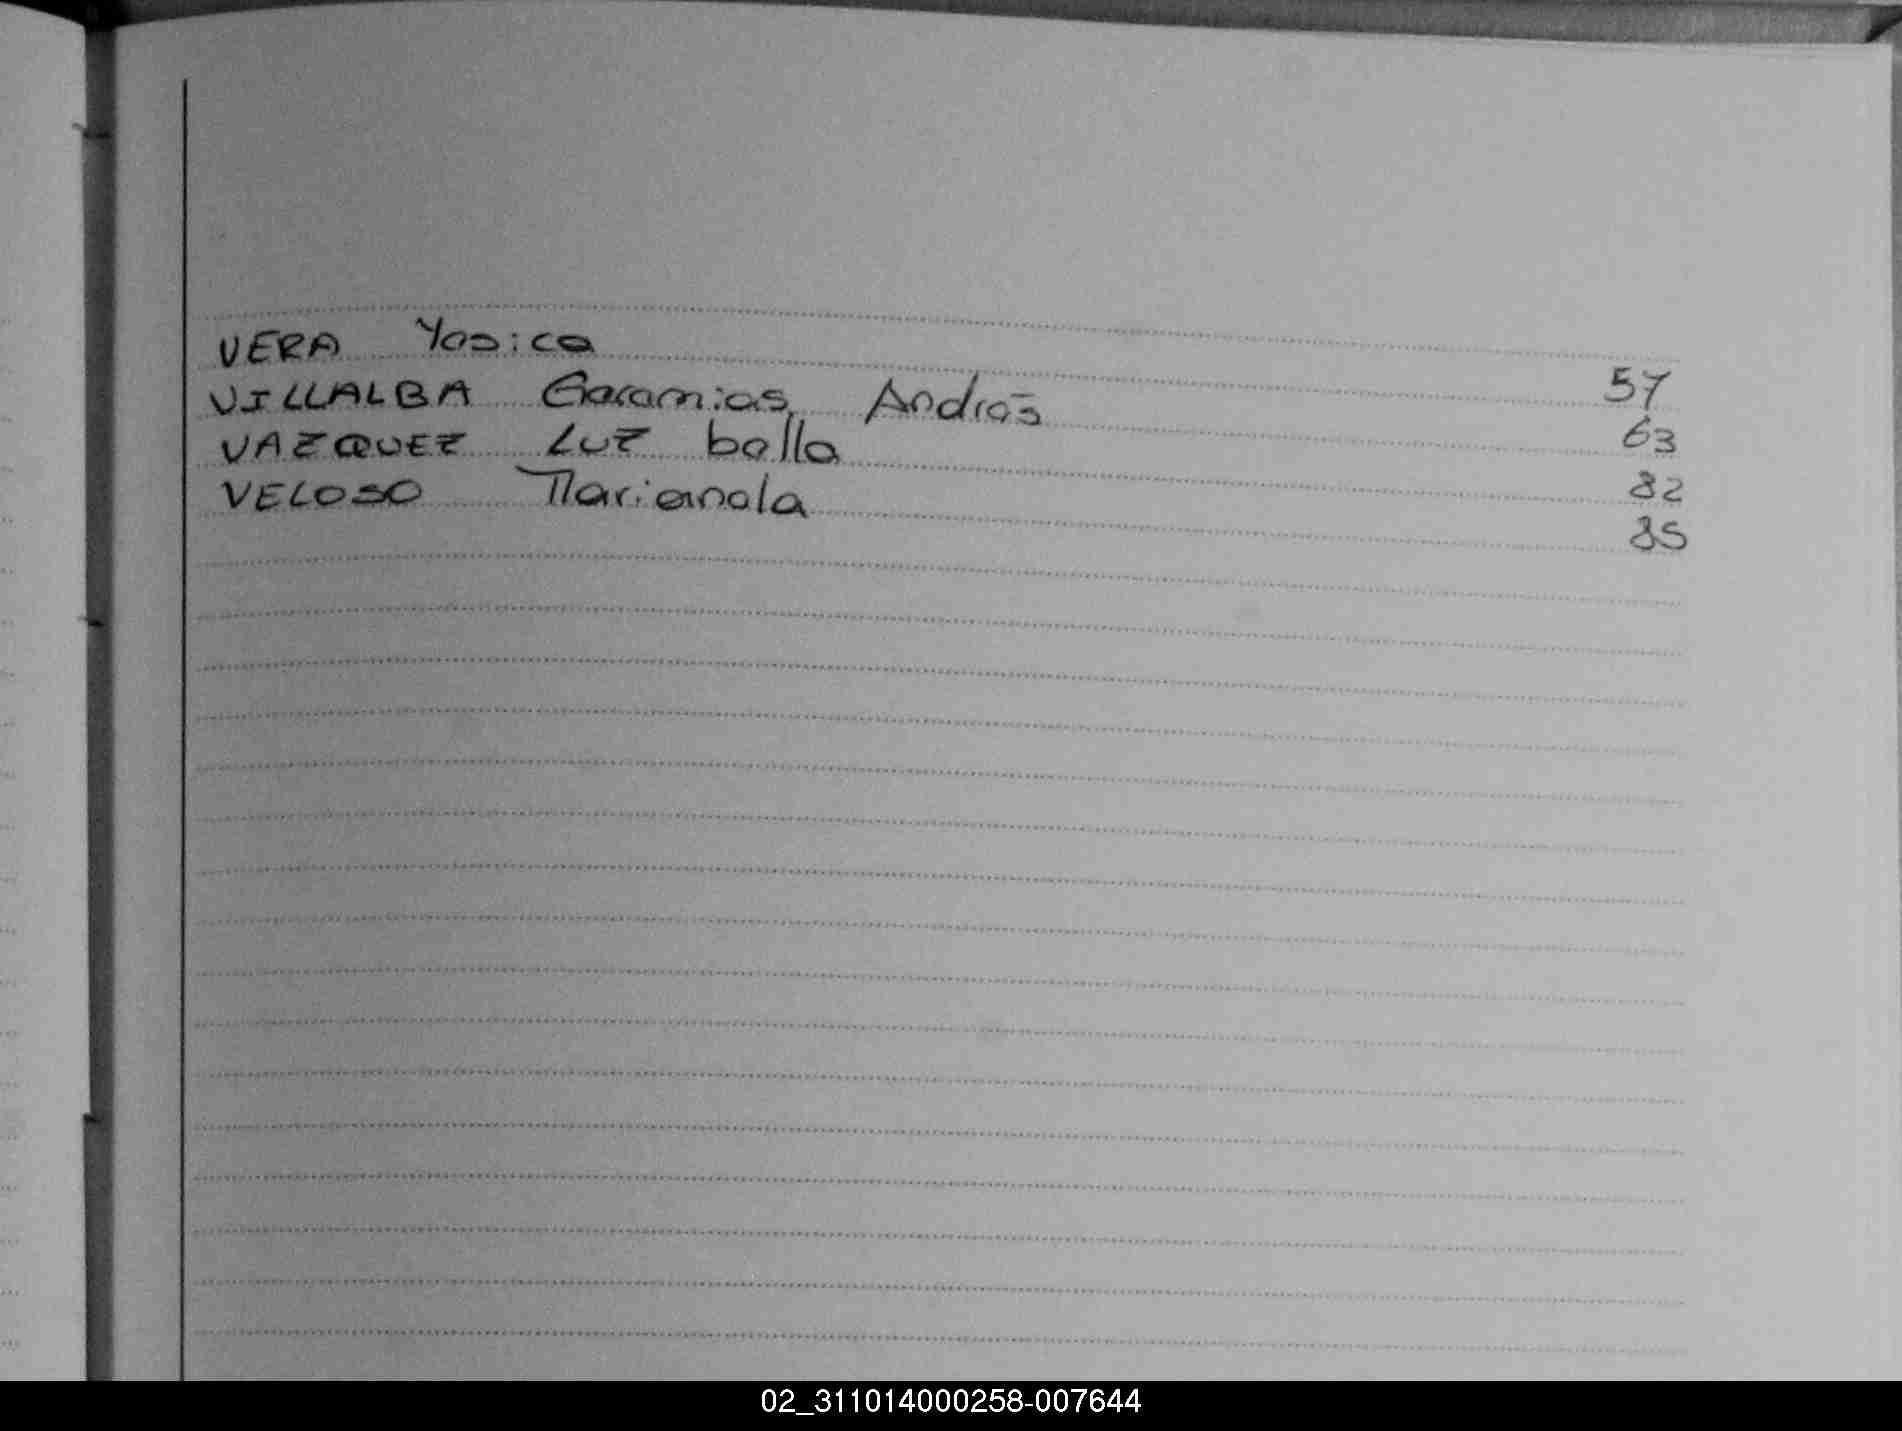 VERA Yesica 57
VILLALBA Geremias Andrés 63
VAZQUEZ Luz bella 82
VELOSO Marianela 85
02_311014000258-007644